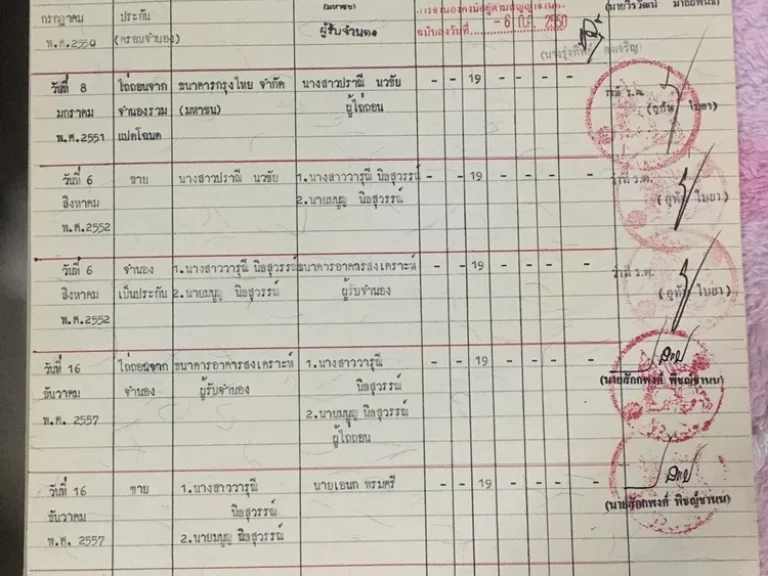 กรกฎาคม ประกัน (มหาชน)
พ.ศ.2550 (ครอบจำนอง) ผู้รับจำนอง - 6 ก.ค. 2550
วันที่ 8 ไถ่ถอนจาก ธนาคารกรุงไทย จำกัด นางสาวปราณี นวชัย - - 19 - - - -
มกราคม จำนองรวม (มหาชน) ผู้ไถ่ถอน
พ.ศ.2551 แปดโฉนด
วันที่ 6 ขาย นางสาวปราณี นวชัย 1.นางสาววารุณี นิลสุวรรณ์ - - 19 - - - - ว่าที่ ร.ต.
สิงหาคม 2.นายมนูญ นิลสุวรรณ์ (อุทัย ใบยา)
พ.ศ.2552
วันที่ 6 จำนอง 1.นางสาววารุณี นิลสุวรรณ์ ธนาคารอาคารสงเคราะห์ - - 19 - - - - ว่าที่ ร.ต.
สิงหาคม เป็นประกัน 2.นายมนูญ นิลสุวรรณ์ ผู้รับจำนอง (อุทัย ใบยา)
พ.ศ.2552
วันที่ 16 ไถ่ถอนจาก ธนาคารอาคารสงเคราะห์ 1.นางสาววารุณี - - 19 - - - -
ธันวาคม จำนอง ผู้รับจำนอง นิลสุวรรณ์
พ.ศ. 2557 2.นายมนูญ นิลสุวรรณ์
ผู้ไถ่ถอน
วันที่ 16 ขาย 1.นางสาววารุณี นายเอนก พรมศรี - - 19 - - - -
ธันวาคม นิลสุวรรณ์
พ.ศ. 2557 2.นายมนูญ นิลสุวรรณ์